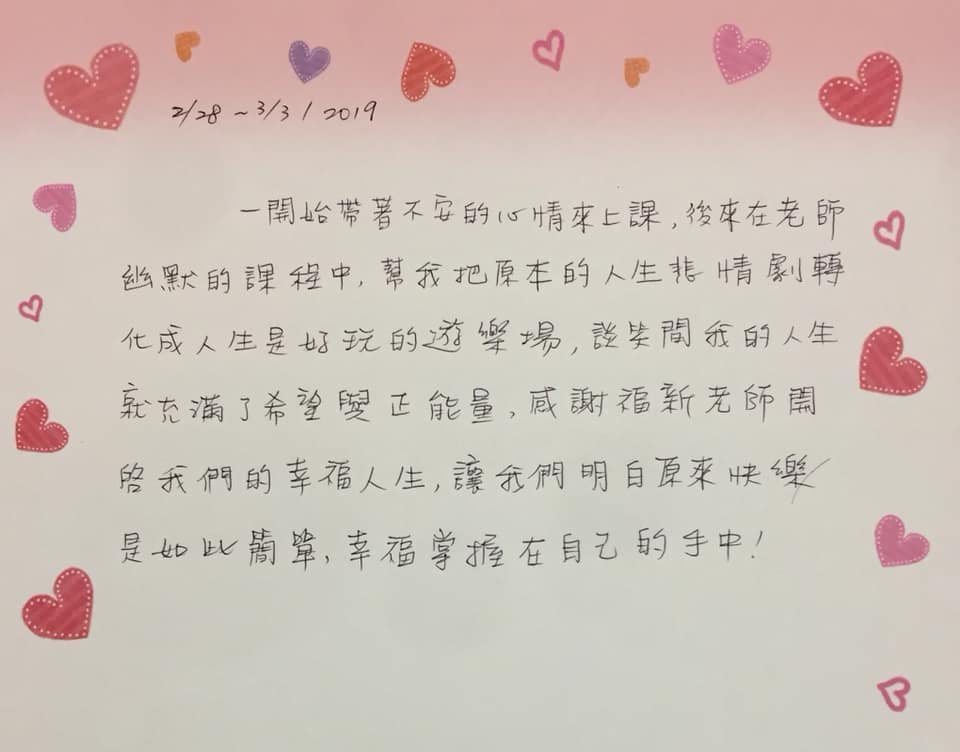 2/28 ~ 3/3 / 2019
一開始帶著不安的心情來上課，後來在老師
幽默的課程中，幫我把原本的人生悲情劇轉
化成人生是好玩的遊樂場，談笑間我的人生
就充滿了希望與正能量，感謝福新老師開
啓我們的幸福人生，讓我們明白原來快樂
是如此簡單，幸福掌握在自己的手中！